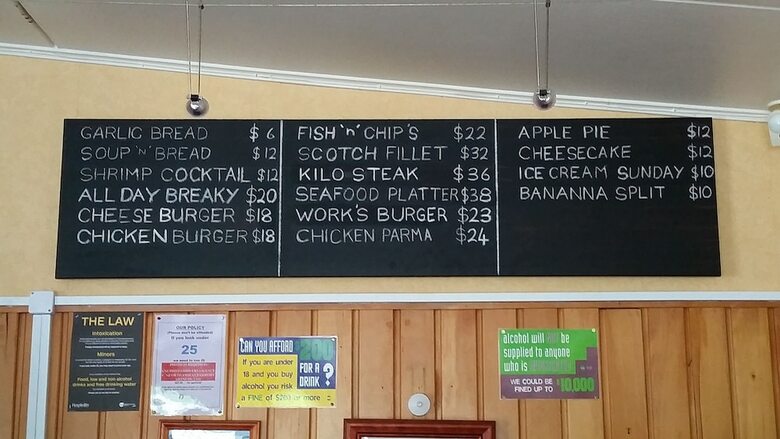 GARLIC BREAD $6
SOUP 'N' BREAD $12
SHRIMP COCKTAIL $12
ALL DAY BREAKY $20
CHEESE BURGER $18
CHICKEN BURGER $18
FISH 'n' CHIP'S $22
SCOTCH FILLET $32
KILO STEAK $36
SEAFOOD PLATTER $38
WORK'S BURGER $23
CHICKEN PARMA $24
APPLE PIE $12
CHEESECAKE $12
ICE CREAM SUNDAY $10
BANANNA SPLIT $10
THE LAW
Intoxication
Minors
Food, low and non-alcohol
drinks and free drinking water
OUR POLICY
(Please don't be offended)
If you look under
25
CAN YOU AFFORD
$200
FOR A
DRINK?
If you are under
18 and you buy
alcohol you risk
a FINE of $200 or more
alcohol will not be
supplied to anyone
who is
WE COULD BE
FINED UP TO $10,000